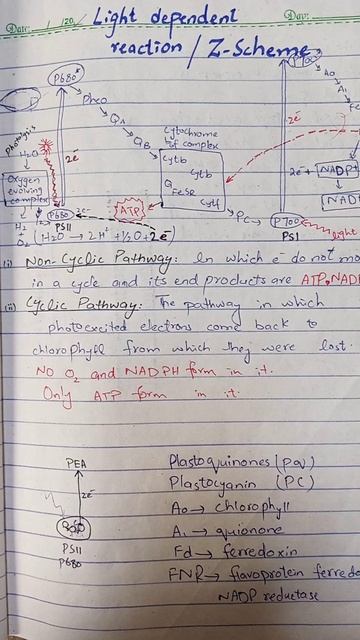 Date: / /20
Light dependent
Date:
reaction / Z-Scheme
P680*
Pheo
QA
QB
Cytochrome
bf complex
Cytb
Cytb
Q
FeSR
Cytf
PC
P700*
Ao
A1
2e⁻
2e⁻
Photolysis
H2O
Oxygen
evolving
complex
P680
PSII
2e⁻
ATP
2e⁻+ NADP+
NADP
P700
PSI
light
H2
+
O2
(H2O → 2H⁺ + ½O + 2e⁻)
(i) Non-Cyclic Pathway: In which e⁻ do not mo
in a cycle and its end products are ATP, NAD
(ii) Cyclic Pathway: The pathway in which
photoexcited electrons come back to
chlorophyll from which they were lost.
NO O2 and NADPH form in it.
Only ATP form in it.
PEA
2e⁻
PSII
P680
Plastoquinones (pq)
Plastocyanin (PC)
Ao → chlorophyll
A1 → quionone
Fd → ferredoxin
FNR → flavoprotein ferredo
NADP reductase